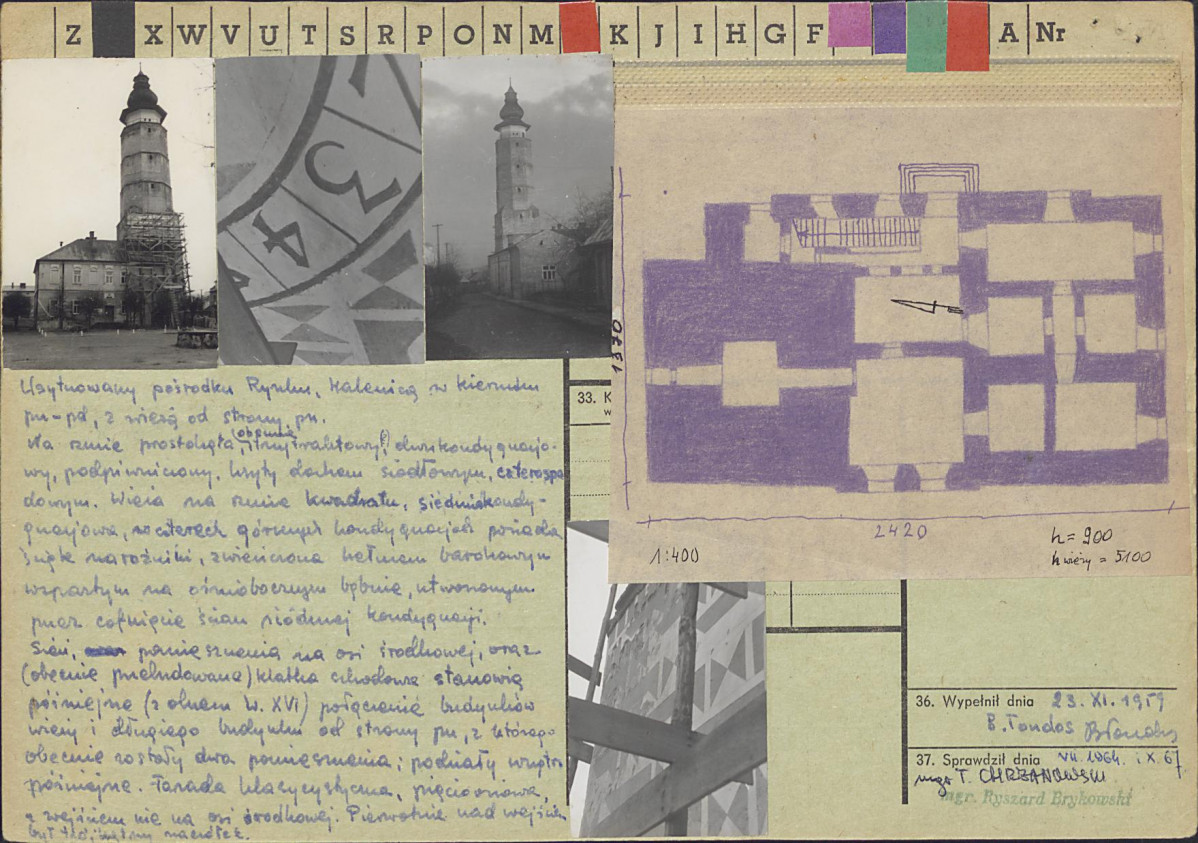 Z X W V U T S R P O N M K J I H G F A Nr
4 3
Usytuowany pośrodku Rynku, kalenicą w kierunku
pn-pd, z wieżą od strony pn.
Na rzucie prostokąta, (obecnie) trzytraktowy(?), dwukondygnacjo-
wy, podpiwniczony, kryty dachem siodłowym, czterospa
dowym. Wieża na rzucie kwadratu, siedmiokondy-
gnacjowa, w czterech górnych kondygnacjach posiada
ścięte narożniki, zwieńczona hełmem barokowym
wspartym na ośmiobocznym bębnie, utworzonym
przez cofnięcie ścian siódmej kondygnacji.
Sień, pomieszczenia na osi środkowej, oraz
(obecnie przebudowana) klatka schodowa stanowią
późniejsze (z okresu w. XVI) połączenie budynków
wieży i długiego budynku od strony pn, z którego
obecnie zostały dwa pomieszczenia; podziały wnętrz
późniejsze. Fasada klasycystyczna, pięcioosiowa,
z wejściem nie na osi środkowej. Pierwotnie nad wejściem
był trójkątny naczółek.
33. K
w
1370
2420
1:400
h = 900
h wieży = 5100
36. Wypełnił dnia 23. XI. 1959
B. Tondos
37. Sprawdził dnia VII 1964 i X 67
mgr T. CHRZANOWSKI
mgr. Ryszard Brykowski